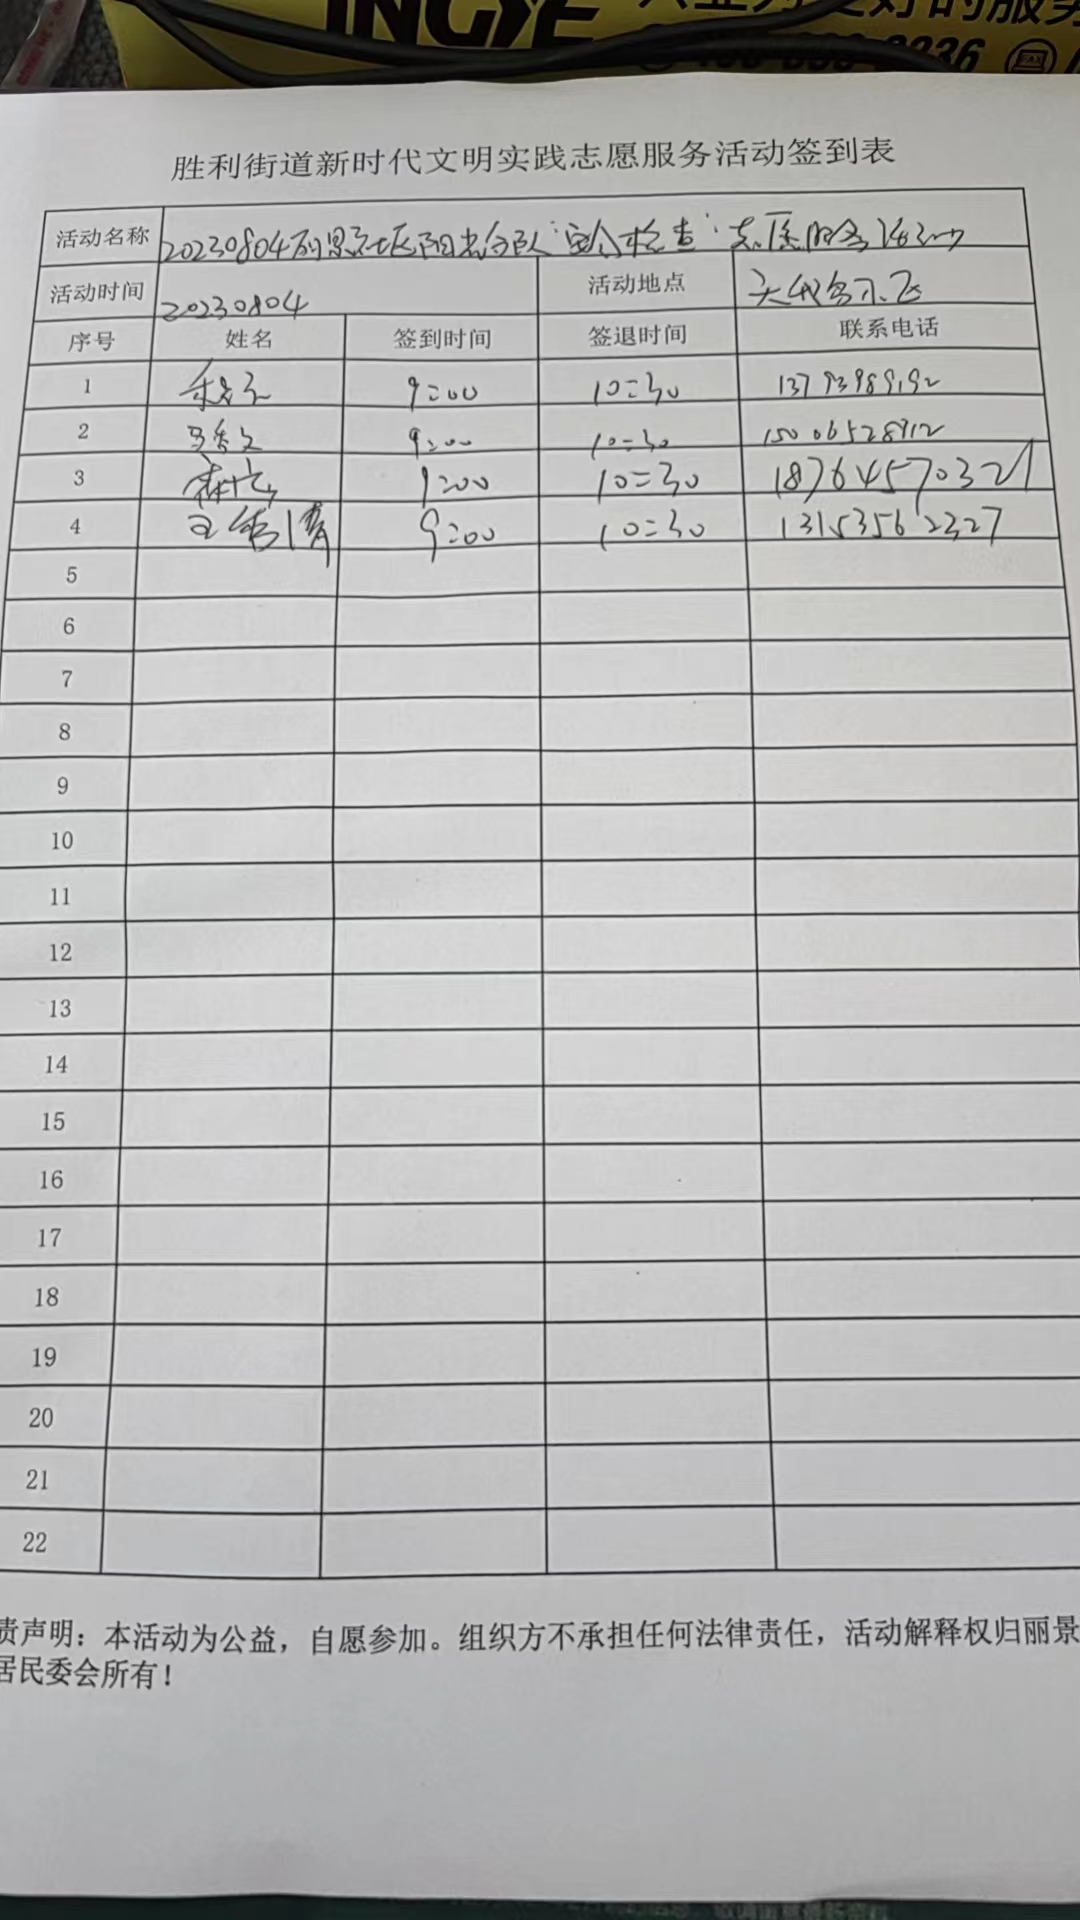 INGYE
的服务
胜利街道新时代文明实践志愿服务活动签到表
活动名称 20230804丽景社区阳光分队"安全检查"志愿服务活动
活动时间 20230804 活动地点
序号 姓名 签到时间 签退时间 联系电话
1 9:00 10:30 13793989192
2 马秀文 9:00 10:30 15006528912
3 9:00 10:30 18764570321
4 王秀清 9:00 10:30 13153562327
5
6
7
8
9
10
11
12
13
14
15
16
17
18
19
20
21
22
责声明：本活动为公益，自愿参加。组织方不承担任何法律责任，活动解释权归丽景
居民委会所有！